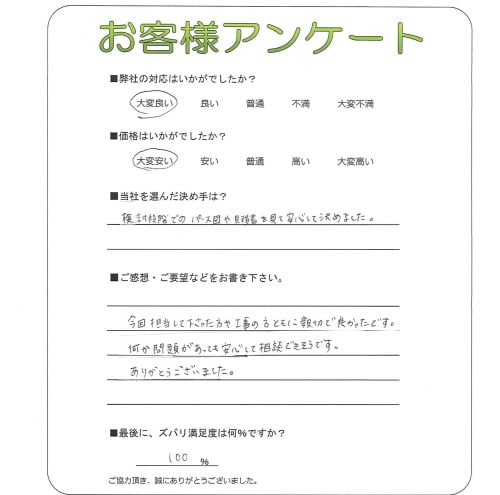 お客様アンケート
■弊社の対応はいかがでしたか？
大変良い 良い 普通 不満 大変不満
■価格はいかがでしたか？
大変安い 安い 普通 高い 大変高い
■当社を選んだ決め手は？
検討段階でのパース図や見積書を見て安心して決めました。
■ご感想・ご要望などをお書き下さい。
今回担当して下さった方や工事の方ともに親切で良かったです。
何か問題があっても安心して相談できそうです。
ありがとうございました。
■最後に、ズバリ満足度は何％ですか？
100 ％
ご協力頂き、誠にありがとうございました。